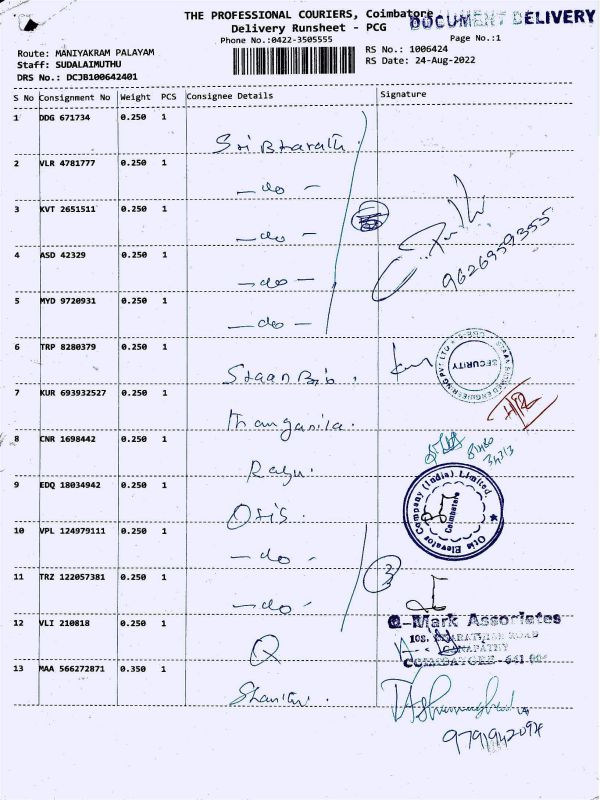 THE PROFESSIONAL COURIERS, Coimbatore
DOCUMENT DELIVERY
Delivery Runsheet - PCG
Phone No.:0422-3505555
Page No.:1
Route: MANIYAKRAM PALAYAM
RS No.: 1006424
Staff: SUDALAIMUTHU
RS Date: 24-Aug-2022
DRS No.: DCJB100642401
S No Consignment No Weight PCS Consignee Details Signature
1 DDG 671734 0.250 1
Sri Bharath.
2 VLR 4781777 0.250 1
-do-
3 KVT 2651511 0.250 1
-do-
4 ASD 42329 0.250 1
-do-
9626959355
5 MYD 9720931 0.250 1
-do-
6 TRP 8280379 0.250 1
SECURITY
7 KUR 693932527 0.250 1
8 CNR 1698442 0.250 1
Ragu.
9 EDQ 18034942 0.250 1
Otis.
Otis Elevator Company (India) Limited.
Coimbatore
10 VPL 124979111 0.250 1
-do-
11 TRZ 122057381 0.250 1
-do-
12 VLI 210818 0.250 1
Q
Q-Mark Associates
108, BHARATHIAR ROAD
GANAPATHY
13 MAA 566272871 0.350 1
Shanthi.
9791942094